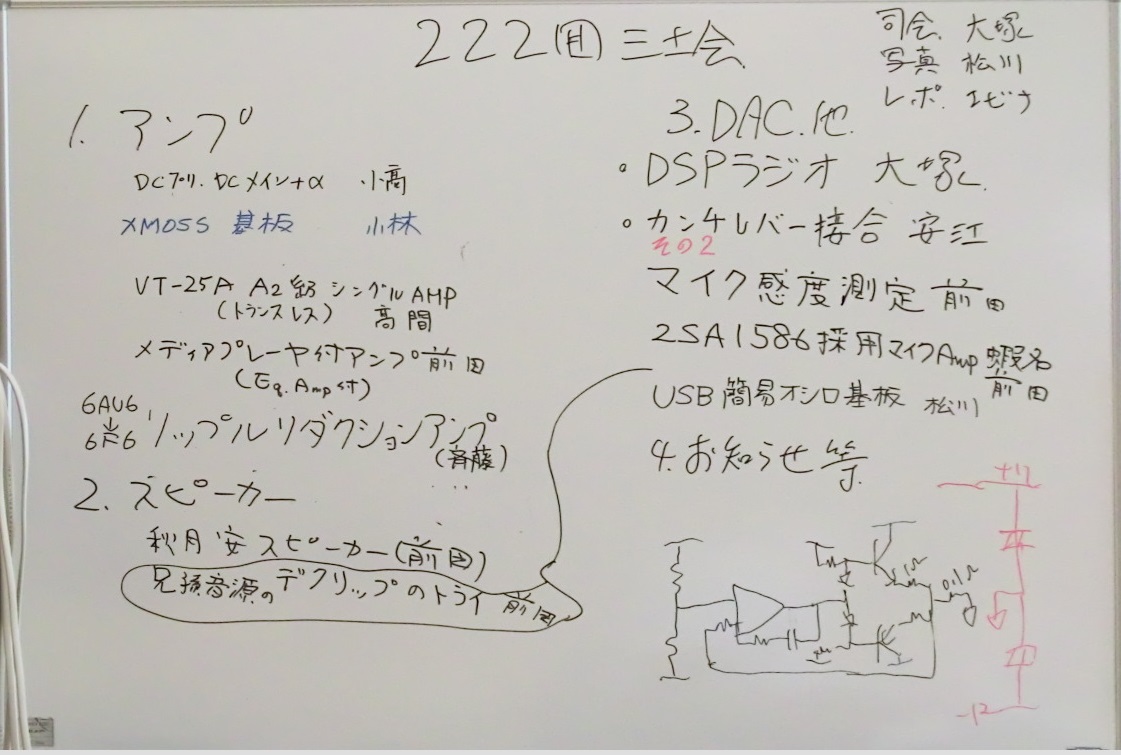 222回 三土会
司会 大塚
写真 松川
レポ. エビナ
1. アンプ
DCプリ. DCメイン+α 小高
XMOSS 基板 小林
VT-25A A2級 シングルAMP
(トランスレス) 高間
メディアプレーヤ付アンプ 前田
(Eq.Amp付)
6AU6
↓
6F6
リップルリダクションアンプ
(斉藤)
2. スピーカー
秋月 安 スピーカー(前田)
音源のデクリップのトライ 前田
3. DAC.他.
・DSPラジオ 大塚
・カンチレバー接合 安江
その2
マイク感度測定 前田
2SA1586採用マイクAmp 蝦名
前田
USB簡易オシロ基板 松川
4. お知らせ等
+12
1Ω
0.1Ω
-12